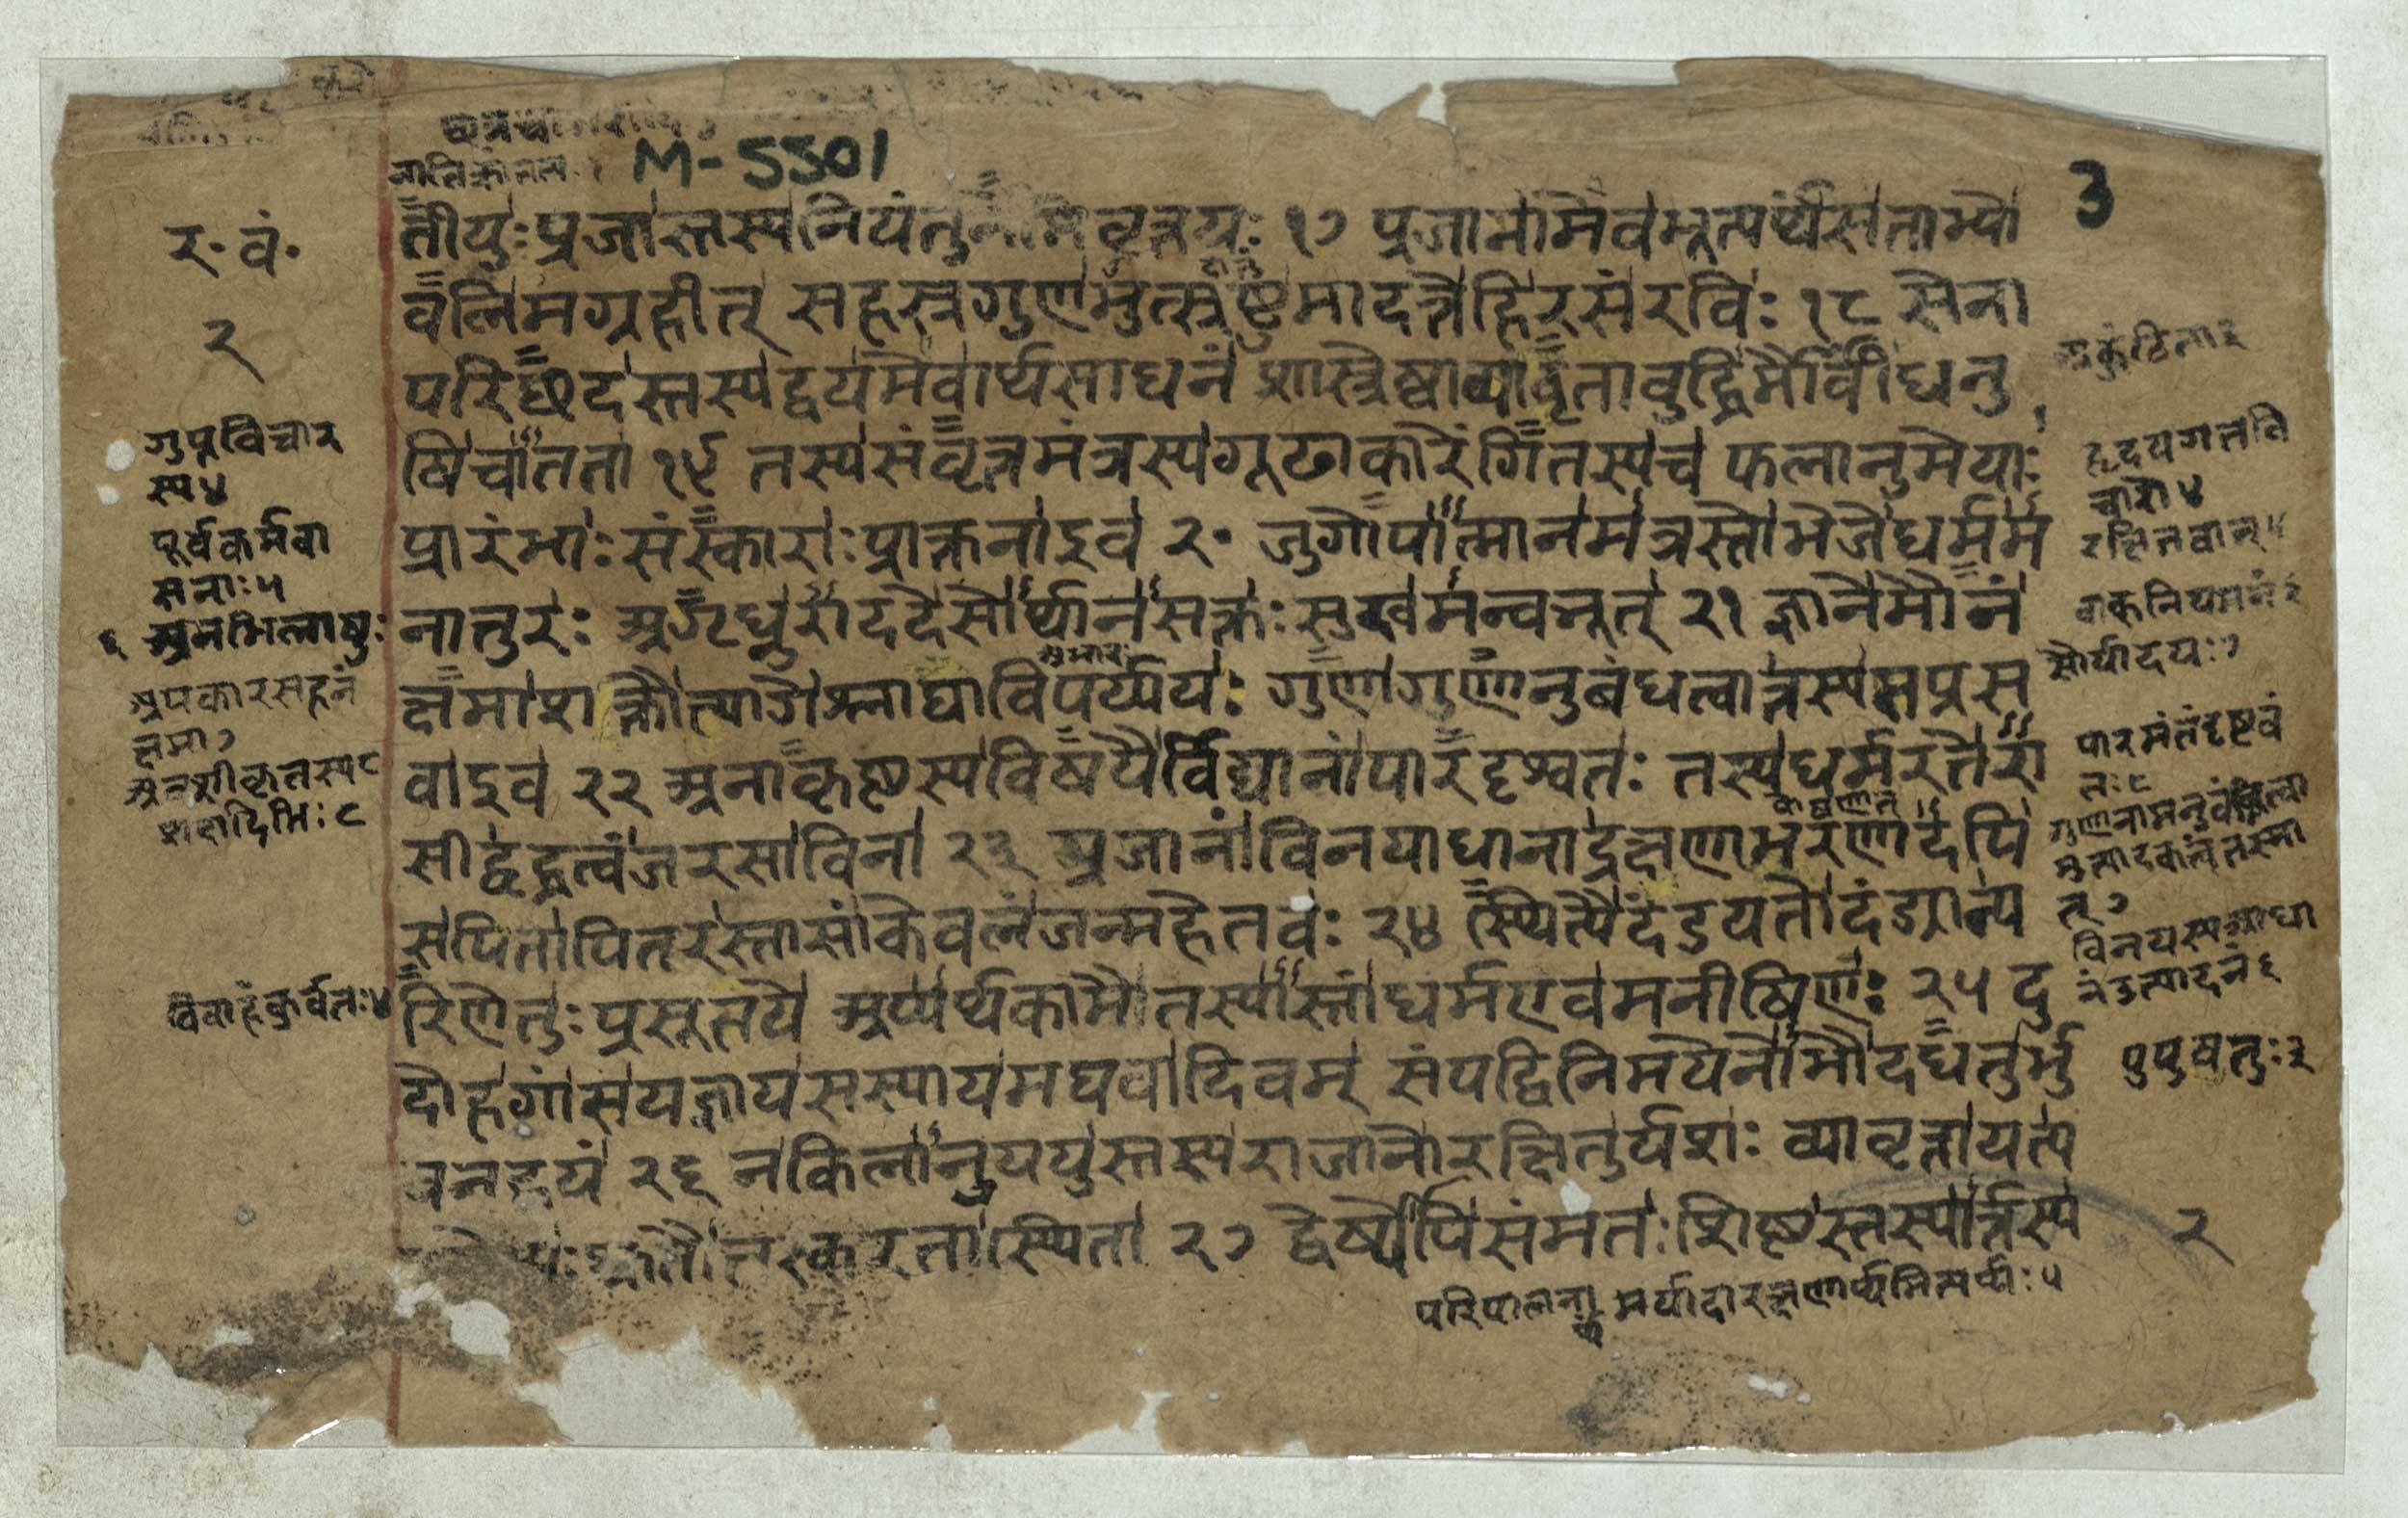 M-5501
3
र॰ वं॰
२
तीयुः प्रजास्तस्य नियंतुर्नेमिवृत्तयः १७ प्रजानामेव भूत्यर्थं स ताभ्यो
बलिमग्रहीत् सहस्रगुणमुत्स्रष्टुमादत्ते हि रसं रविः १८ सेना
परिछदस्तस्य द्वयमेवार्थसाधनं शास्त्रेष्वव्यापृता बुद्धिर्मौर्वी धनु
षि चातता १९ तस्य संवृत्तमंत्रस्य गूढाकारेंगितस्य च फलानुमेयाः
प्रारंभाः संस्काराः प्राक्तना इव २॰ जुगोपात्मानमत्रस्तो भेजे धर्मम
नातुरः अगृध्नुराददे सोर्थानसक्तः सुखमन्वभूत् २१ ज्ञाने मौनं
क्षमा शक्तौ त्यागे श्लाघाविपर्य्ययः गुणा गुणानुबंधत्वात्तस्य सप्रस
वा इव २२ अनाकृष्टस्य विषयैर्विद्यानां पारदृश्वनः तस्य धर्मरतेरा
सीद्वृद्धत्वं जरसा विना २३ प्रजानां विनयाधानाद्रक्षणाद्भरणादपि
स पिता पितरस्तासां केवलं जन्महेतवः २४ स्थित्यै दंडयतो दंड्यान्प
रिणेतुः प्रसूतये अप्यर्थकामौ तस्यास्तां धर्म एव मनीषिणः २५ दु
दोह गां स यज्ञाय सस्याय मघवा दिवम् संपद्विनिमयेनोभौ दधतुर्भु
वनद्वयं २६ न किलानुययुस्तस्य राजानो रक्षितुर्यशः व्यावृत्ता यत्प
रस्वेभ्यः श्रुतौ तस्करता स्थिता २७ द्वेष्योपि संमतः शिष्टस्तस्यार्त्तस्य
गुप्तविचार
स्य ४
पूर्वकर्मवा
सनाः ५
६ अनभिलाषुः
अपकारसहनं
क्षमा ७
अवशीकृतस्य ८
शब्दादिभिः ८
विवाहं कुर्वतः ४
अकुंठिता ३
हृदयगतवि
चारो ४
रक्षितवान् ५
वाक्नियमनं
पारमंतं दृष्टवं
तः ९
विनयस्य आधा
नं उत्पादनं ६
पुपुषतुः ३
२
परिपालना मर्यादारक्षणार्थमित्यर्थः ५